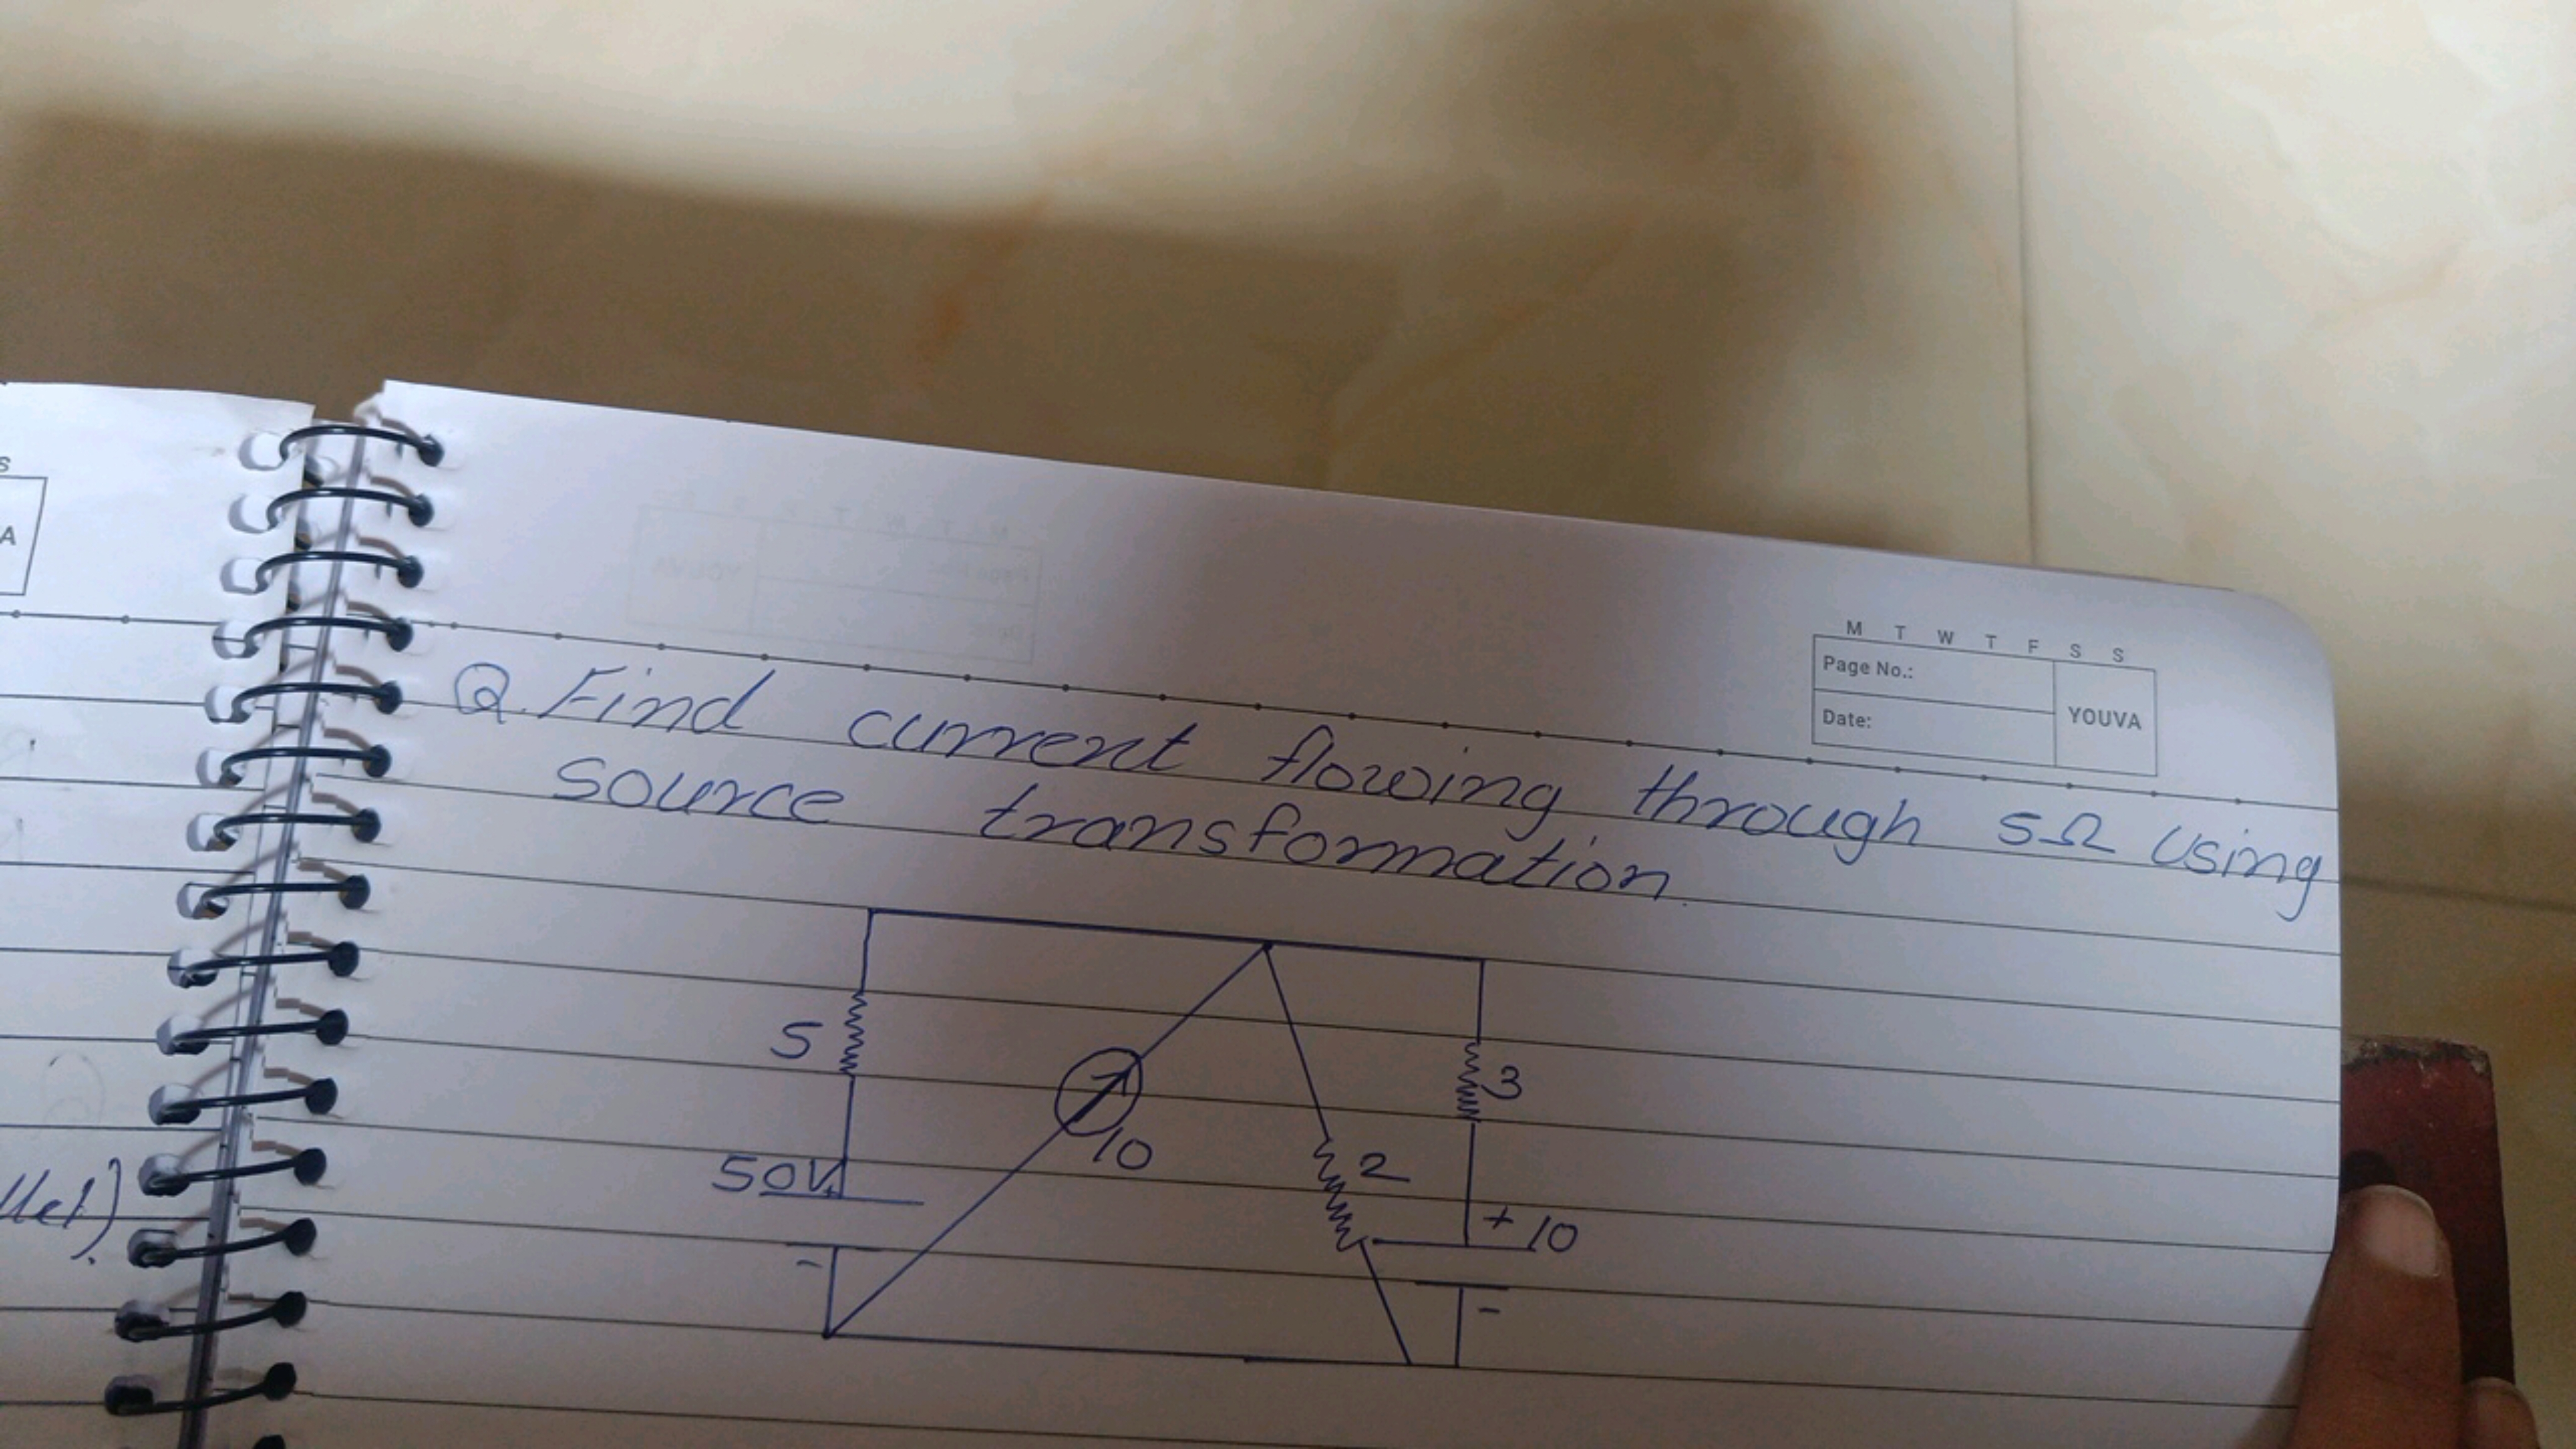 S
A
M T W T F S S
Page No.:
Date:
YOUVA
Q. Find current flowing through 5Ω using
source transformation.
5
3
10
2
50V
+
+ 10
-
-